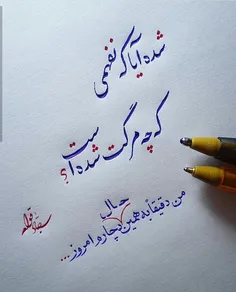 شده آیا که نفهمی
که چه مرگت شده است؟
من دقیقاً به همین حال دچارم امروز...